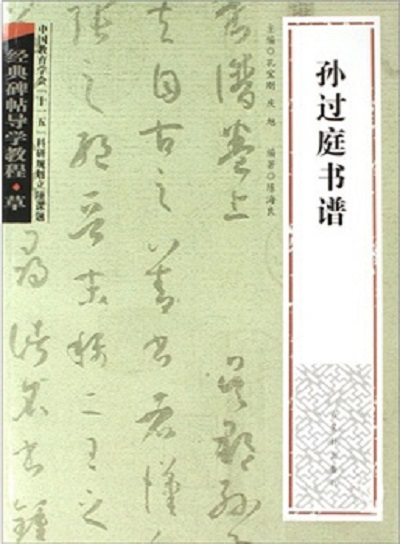 孙过庭书谱
主编◎孔宝刚 庆旭 编著◎陈海良
书谱卷上
吴郡孙
夫自古之善书者汉
张之绝晋末称二王之
寻诸名书钟
中国教育学会“十一五”科研规划立项课题
经典碑帖导学教程·草